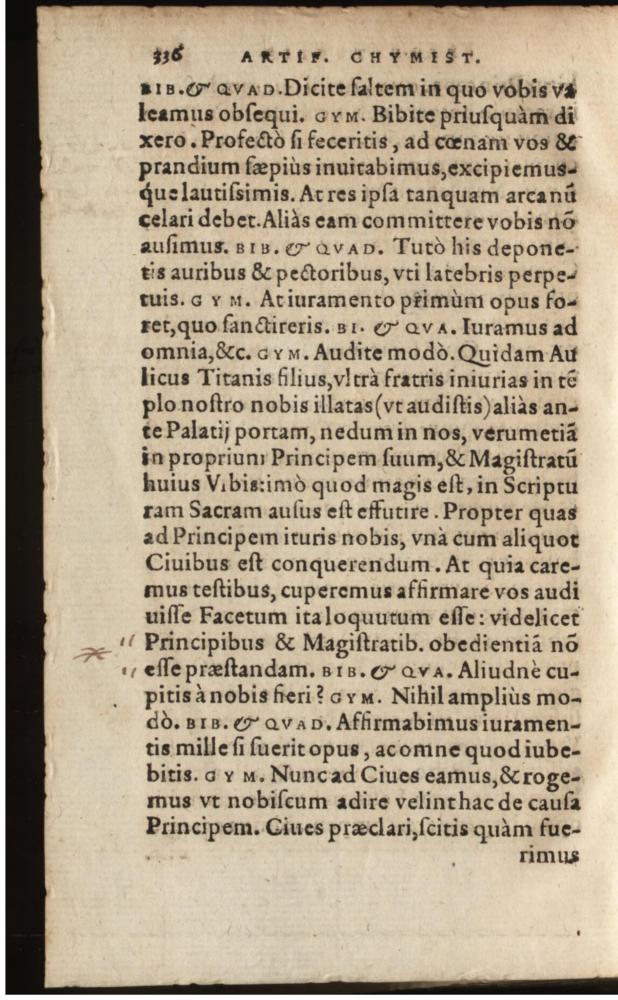 336 ARTIF. CHYMIST.
BIB. & QVAD. Dicite ſaltem in quo vobis va
leamus obſequi. GYM. Bibite priuſquàm di
xero. Profectò ſi feceritis, ad cœnam vos &
prandium ſæpiùs inuitabimus, excipiemus-
q́ue lautiſsimis. At res ipſa tanquam arcanũ
celari debet. Aliàs eam committere vobis nõ
auſimus. BIB. & QVAD. Tutò his depone-
tis auribus & pectoribus, vti latebris perpe-
tuis. GYM. At iuramento primùm opus fo-
ret, quo ſanctireris. BI. & QVA. Iuramus ad
omnia, &c. GYM. Audite modò. Quidam Au
licus Titanis filius, vltrà fratris iniurias in tẽ
plo noſtro nobis illatas (vt audiſtis) aliàs an-
te Palatij portam, nedum in nos, verumetiã
in proprium Principem ſuum, & Magiſtratũ
huius Vrbis: imò quod magis eſt, in Scriptu
ram Sacram auſus eſt effutire. Propter quas
ad Principem ituris nobis, vnà cum aliquot
Ciuibus eſt conquerendum. At quia care-
mus teſtibus, cuperemus affirmare vos audi
uiſſe Facetum ita loquutum eſſe: videlicet
" Principibus & Magiſtratib. obedientiã nõ
" eſſe præſtandam. BIB. & QVA. Aliudnè cu-
pitis à nobis fieri? GYM. Nihil ampliùs mo-
dò. BIB. & QVAD. Affirmabimus iuramen-
tis mille ſi fuerit opus, ac omne quod iube-
bitis. GYM. Nunc ad Ciues eamus, & roge-
mus vt nobiſcum adire velint hac de cauſa
Principem. Ciues præclari, ſcitis quàm fue-
rimus